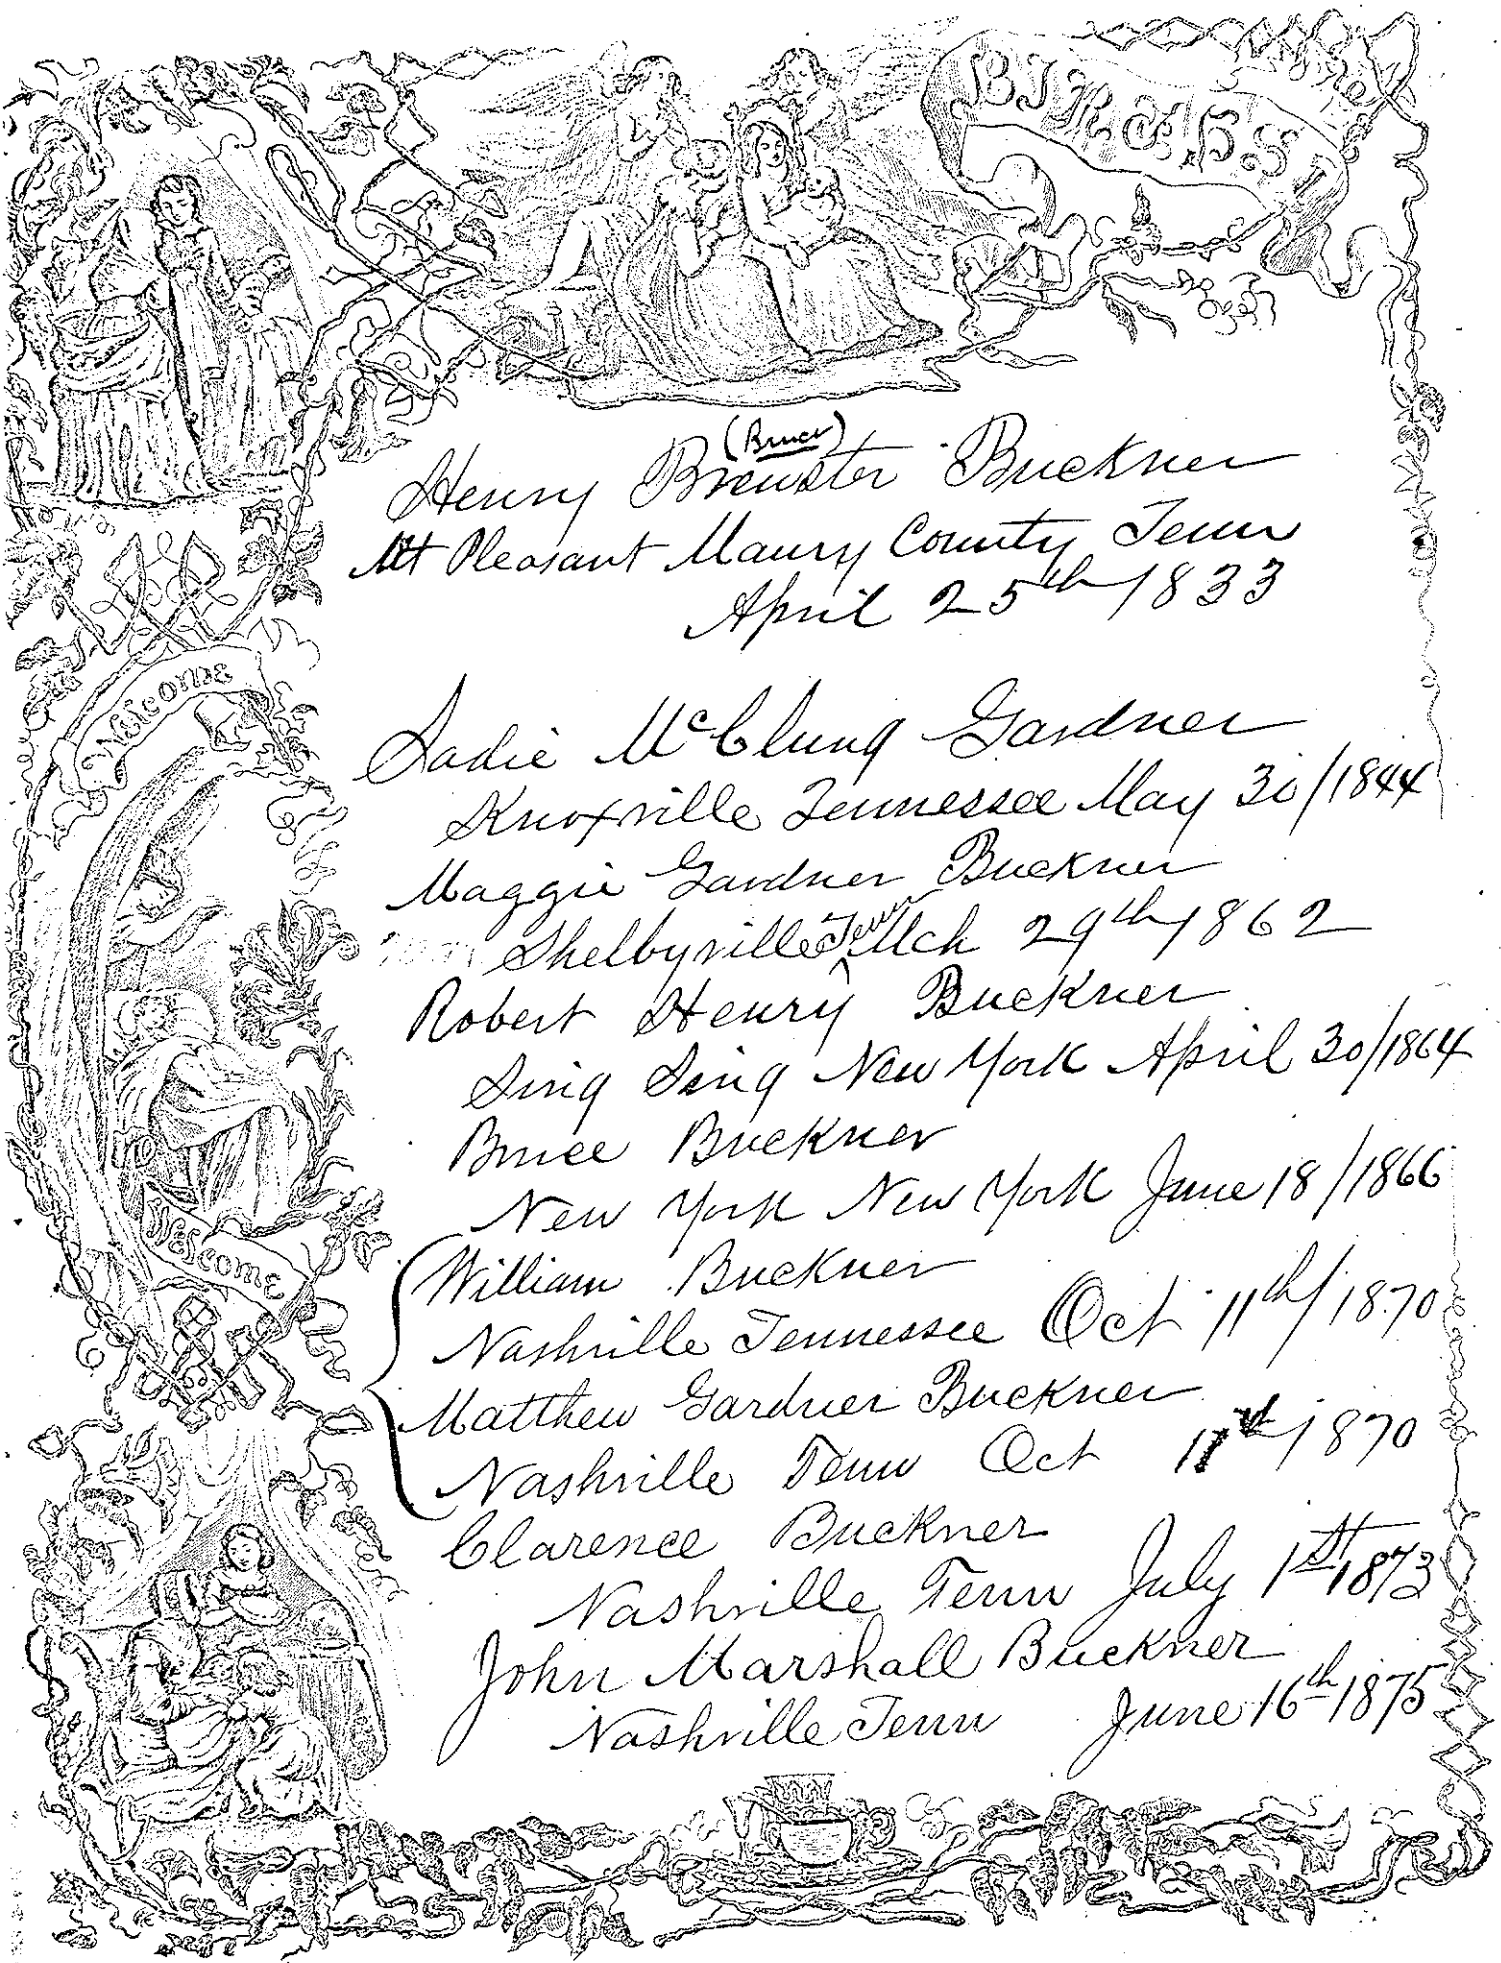 BIRTHS.
(Bruce)
Henry Brewster Buckner
Mt Pleasant Maury County Tenn
April 25th/1833
Welcome
Sadie McClung Gardner
Knoxville Tennessee May 30/1844
Maggie Gardner Buckner
Shelbyville Tenn Mch 29th/1862
Robert Henry Buckner
Sing Sing New York April 30/1864
Bruce Buckner
New York New York June 18/1866
Welcome
William Buckner
Nashville Tennessee Oct 11th/1870
Matthew Gardner Buckner
Nashville Tenn Oct 11th/1870
Clarence Buckner
Nashville Tenn July 1st 1873
John Marshall Buckner
Nashville Tenn June 16th 1875